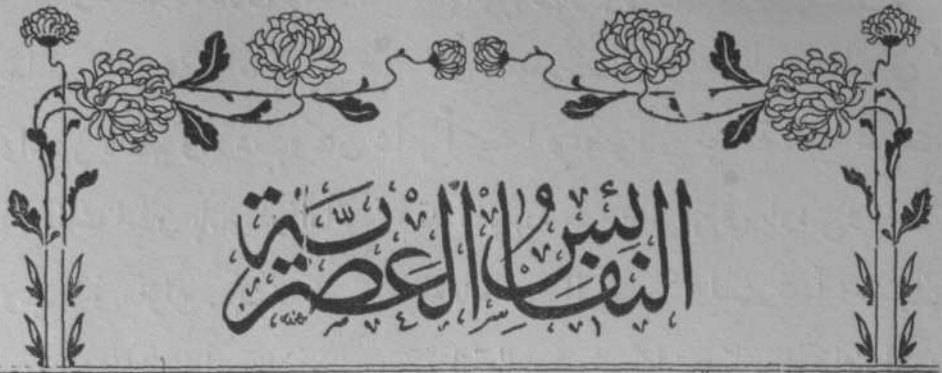 النَفَائِسُ العَصْرِيَّة